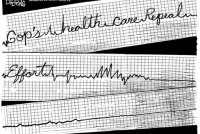 GOP's health care Repeal
Effort